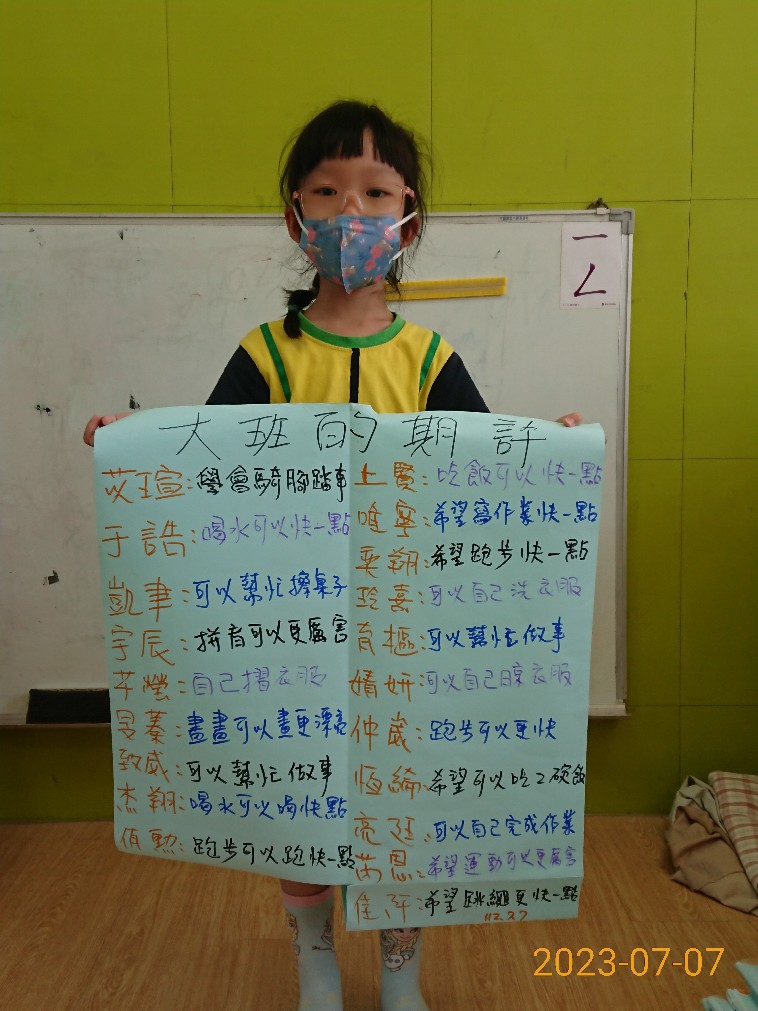 一ㄥ
大班的期許
苡瑄:學會騎腳踏車
于誥:喝水可以快一點
凱聿:可以幫忙擦桌子
宇辰:拼音可以更厲害
芊瑩:自己摺衣服
旻蓁:畫畫可以畫更漂亮
致威:可以幫忙做事
杰翔:喝水可以喝快點
侑勳:跑步可以跑快一點
上賢:吃飯可以快一點
唯寧:希望寫作業快一點
奕翔:希望跑步快一點
玲熹:可以自己洗衣服
育樞:可以幫忙做事
婧妍:可以自己晾衣服
仲崴:跑步可以更快
恆綸:希望可以吃2碗飯
亮廷:可以自己完成作業
芮恩:希望運動可以更厲害
佳阡:希望跳繩更快一點
112.7.7
2023-07-07